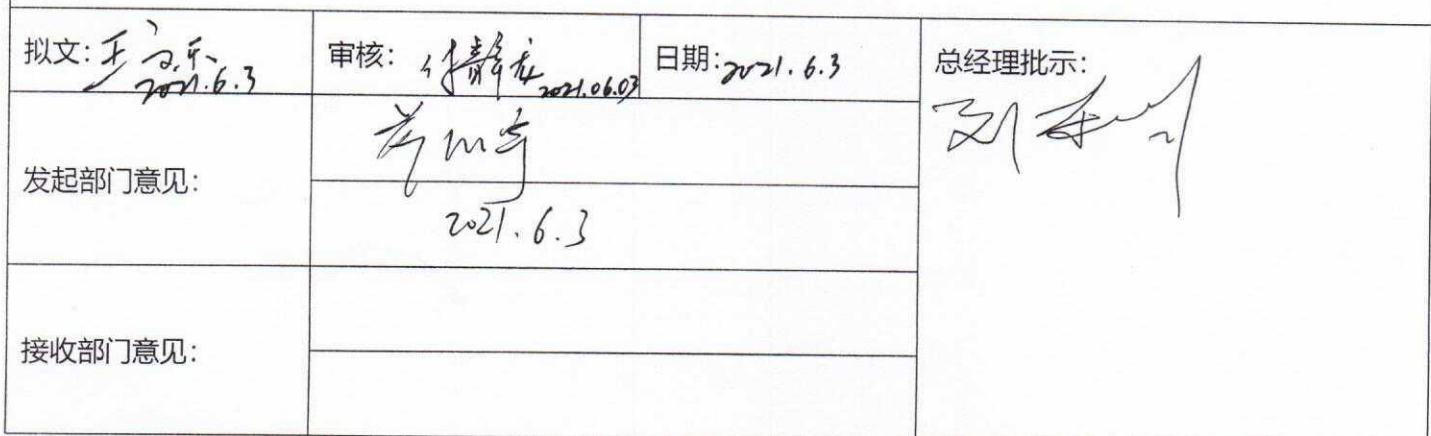 拟文:
2021.6.3
审核:
2021.06.03
日期:2021.6.3
总经理批示:
发起部门意见:
2021.6.3
接收部门意见: